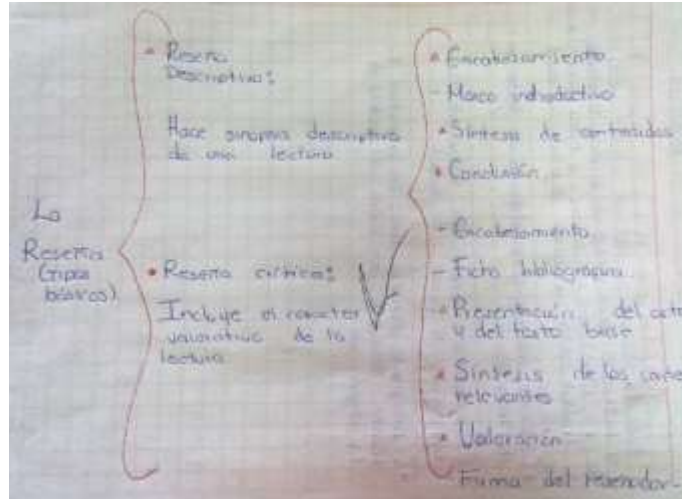 La
Reseña
(tipos
básicos)
• Reseña
Descriptiva:
Hace sinopsis descriptiva
de una lectura
• Reseña crítica:
Incluye el caracter
valorativo de la
lectura
• Encabezamiento
Marco introductivo
• Síntesis de contenidos
• Conclusión
- Encabezamiento
- Ficha bibliográfica
• Presentación del
y del texto base
• Síntesis de las
relevantes
• Valoración
Firma del reseñador